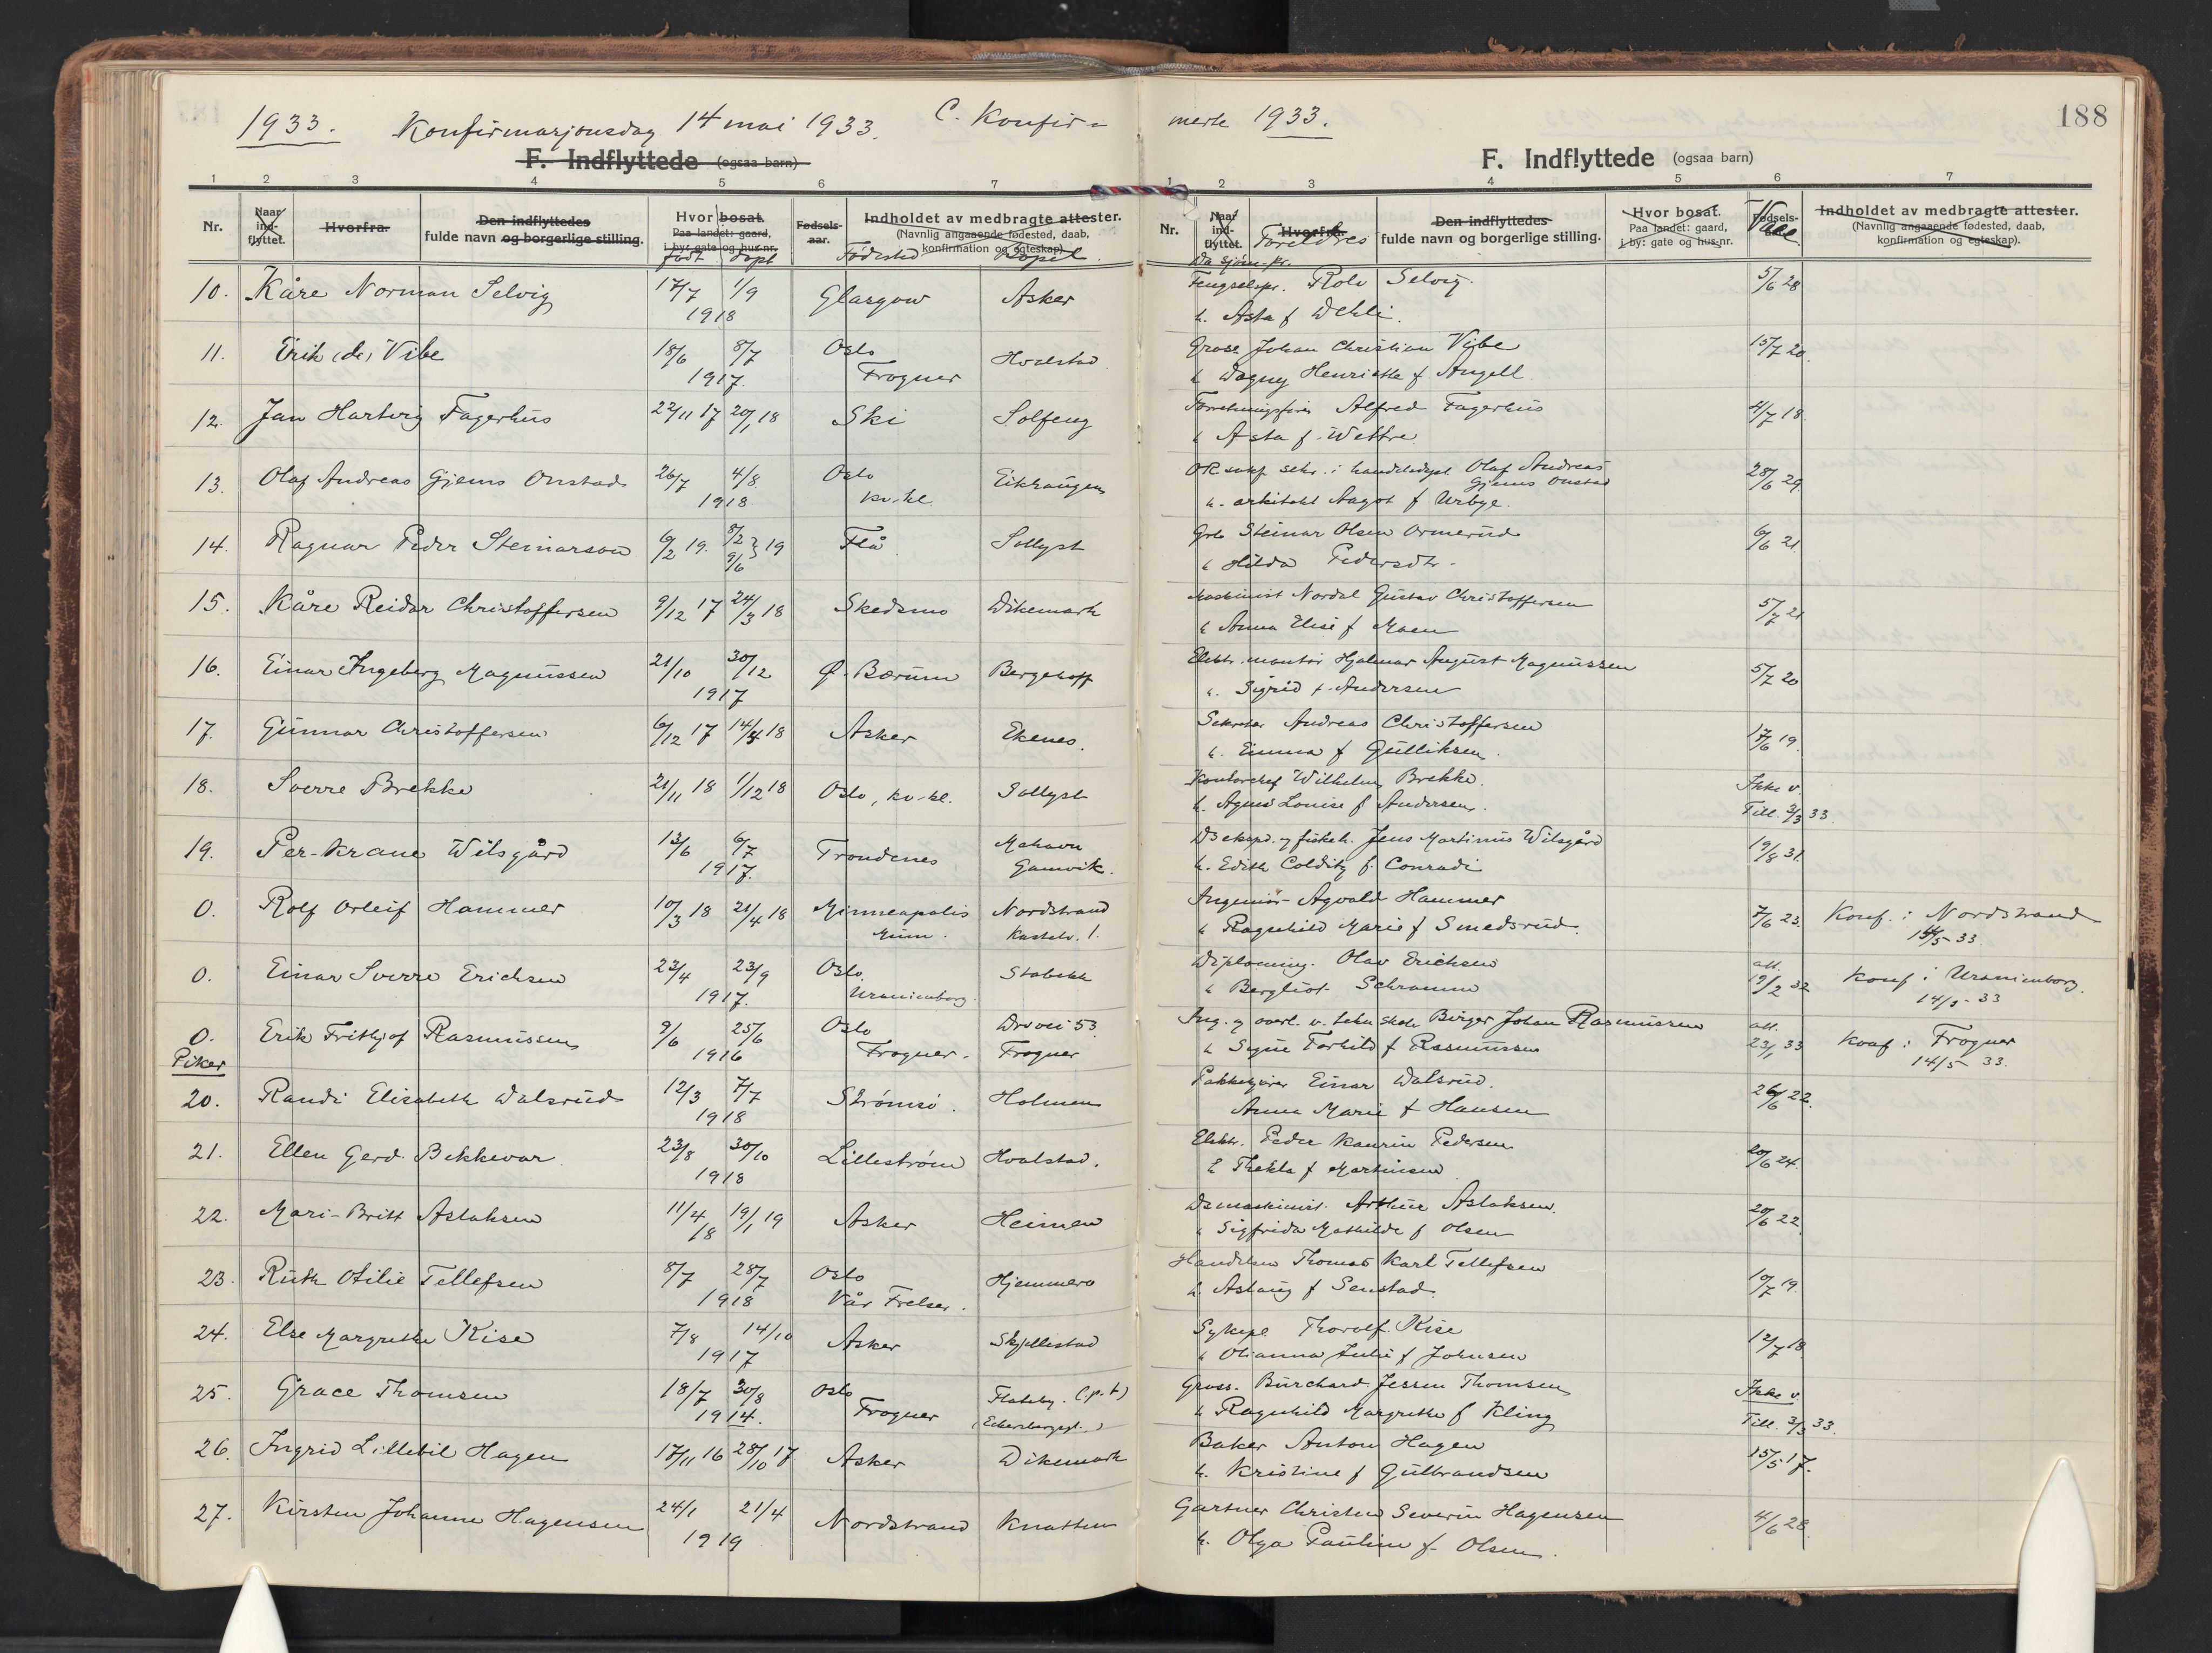 1933. Konfirmasjonsdag 14 mai 1933. C. Konfir=
merte 1933.
188
F. Indflyttede (ogsaa barn)
F. Indflyttede (ogsaa barn)
1 2 3 4 5 6 7
1 2 3 4 5 6 7
Nr. Naar ind-flyttet. Hvorfra. Den indflyttedes fulde navn og borgerlige stilling. Hvor bosat. Paa landet: gaard, i by: gate og hus nr. Fødsels-aar. Indholdet av medbragte attester. (Navnlig angaaende fødested, daab, konfirmation og egteskap).
født døpt Fødested Bopel
Nr. Naar ind-flyttet. Hvorfra. Den indflyttedes fulde navn og borgerlige stilling. Hvor bosat. Paa landet: gaard, i by: gate og hus nr. Fødsels-aar. Indholdet av medbragte attester. (Navnlig angaaende fødested, daab, konfirmation og egteskap).
Foreldres Vacc.
10. Kåre Norman Selvig 17/7 1/9 1918 Glasgow Asker
Da sjøm.pr.
Fengselspr. Rolv Selvig. 5/6 28
h. Asta f Dehli.
11. Erik (de) Vibe 18/6 8/7 1917. Oslo Frogner Hvalstad
Gross. Johan Christian Vibe 15/7 20
h Dagny Henriette f Angell
12. Jan Hartvig Fagerhus 22/11 17 20/1 18 Ski Solfeng
Forretningsfører Alfred Fagerhus 4/7 18
h Asta f. Wettre
13. Olaf Andreas Gjems Onstad 26/7 4/8 1918 Oslo kv.kl. Eikhaugen
OR sakf. sekr. i handelsdept Olaf Andreas Gjems Onstad 28/6 29
h. arkitekt Aagot f Urbye.
14. Ragnar Peder Steinarson 6/2 19. 8/2 9/6 19 Flå Sollyst
Grb Steinar Olsen Ormerud 6/6 21
h Hilda Pedersdtr.
15. Kåre Reidar Christoffersen 9/12 17 24/3 18 Skedsmo Dikemark
Maskinist Nordal Gustav Christoffersen 5/7 21
h Anna Elise f Moen
16. Einar Ingeberg Magnussen 21/10 30/12 1917 Ø. Bærum Bergehoff
Elektr. montør Hjalmar August Magnussen 5/7 20
h. Sigrid f. Andersen
17. Gunnar Christoffersen 6/12 17 14/4 18 Asker Ekenes.
Sekretær Andreas Christoffersen 17/6 19.
h. Emma f Gulliksen.
18. Sverre Brekke 21/11 18 1/12 18 Oslo, kv-kl. Sollyst
Kontorchef Wilhelm Brekke. Ikke v.
h. Agnes Louise f Andersen. Till. 3/3 33.
19. Per-Krane Wilsgård 13/6 6/7 1917. Trondenes Mehavn Gamvik.
Ds eksped. og fiskeh. Jens Martinus Wilsgård 19/8 31.
h. Edith Colditz f. Conradi
0. Rolf Orleif Hammer 10/3 18 21/4 18 Minneapolis Minn. Nordstrand Kastelv. 1.
Ingeniør Agvald Hammer 7/6 23. Konf. i Nordstrand
h Ragnhild Marie f Smedsrud. 14/5 33.
0. Einar Sverre Erichsen 23/4 23/9 1917. Oslo Uranienborg. Stabekk
Diploming. Olav Erichsen att. 19/2 32 Konf i Uranienborg.
h Bergliot Schramm 14/5-33
0. Erik Frithjof Rasmussen 9/6 25/6 1916 Oslo Frogner. Drvei 53 Frogner
Ing. og overl. v. tekn skole Birger Johan Rasmussen att. 23/1 33 Konf. i Frogner
h Signe Torhild f Rasmussen 14/5 33.
Piker
20. Randi Elisabeth Walsrud 12/3 7/7 1918 Strømsø. Holmen
Pakkekjører Einar Walsrud. 26/6 22.
Anna Marie f Hansen
21. Ellen Gerd Bekkevar 23/8 30/10 1918 Lillestrøm Hvalstad.
Elektr. Peder Kaurin Pedersen 20/6 24.
h Thekla f Martinsen
22. Mari-Britt Aslaksen 11/4 18 19/1 19 Asker Heimen
Dsmaskinist. Arthur Aslaksen. 20/6 22
h Sigfrida Mathilde f Olsen
23. Ruth Otilie Tellefsen 8/7 28/7 1918 Oslo Vår Frelser. Hjemmero
Handelsm Thomas Karl Tellefsen 10/7 19.
h. Aslaug f Senstad.
24. Else Margrethe Kise 7/8 14/10 1917 Asker Skjellestad
Sykepl Thorolf Kise 12/7 18
h Olianna Julie f Johnsen
25. Grace Thomsen 18/7 30/8 1914. Oslo Frogner Flateby. (p.t) (Eckersbergsgt.)
Gross. Burchard Jessen Thomsen Ikke v
h Ragnhild Margrethe f Kling Till. 3/3 33.
26. Ingrid Lillebil Hagen 17/11 16 28/10 17 Asker Dikemark
Baker Anton Hagen 15/5 17.
h. Kristine f Gulbrandsen
27. Kirsten Johanne Hagensen 24/1 21/4 1919 Nordstrand Knatten
Gartner Christen Severin Hagensen 4/6 28.
h. Olga Pauline f Olsen.